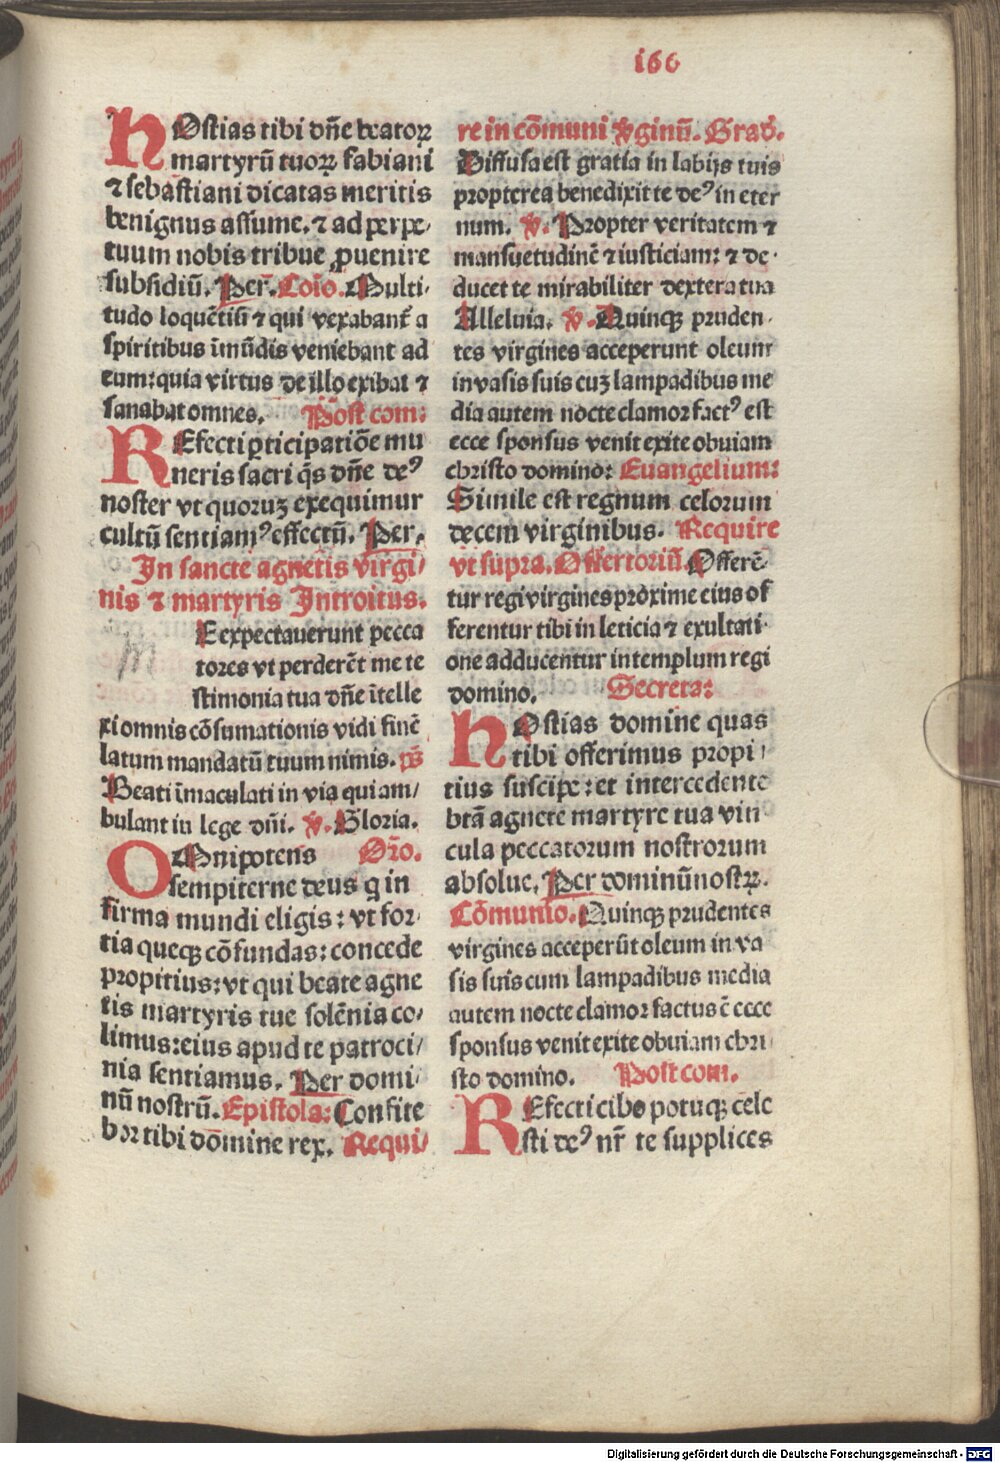 166
HOstias tibi dn̄e beatoꝝ
martyrū tuoꝝ fabiani
⁊ sebastiani dicatas meritis
benignus assume. ⁊ ad perpe⸗
tuum nobis tribue ꝓuenire
subsidiū. Per̄. Cōio. Multi⸗
tudo loquētiū ⁊ qui vexabant̄ a
spiritibus īmūdis veniebant ad
eum: quia virtus de illo exibat ⁊
sanabat omnes. Post com:
REfecti ꝑticipatiōe mu
neris sacri q̄s dn̄e deꝰ
noster vt quoruꝫ exequimur
cultū sentiamꝰ effectū. Per.
In sancte agnetis virgi⸗
nis ⁊ martyris Introitus.
E expectauerunt pecca
tores vt perderēt me te
stimonia tua dn̄e ītelle
xi omnis cōsumationis vidi finē
latum mandatū tuum nimis. ps̄
Beati īmaculati in via qui am⸗
bulant in lege dn̄i. ℣. Gloria.
OMnipotens Or̄o.
sempiterne deus q in
firma mundi eligis: vt for⸗
tia queqꝫ cōfundas: concede
propitius: vt qui beate agne
tis martyris tue solēnia co⸗
limus: eius apud te patroci⸗
nia sentiamus. Per domi⸗
nū nostrū. Epistola: Confite
bor tibi dōmine rex. Requi⸗
re in cōmuni v̄ginū. Grad̄.
Diffusa est gratia in labijs tuis
propterea benedixit te deꝰ in eter
num. ℣. Propter veritatem ⁊
mansuetudinē ⁊ iusticiam: ⁊ de⸗
ducet te mirabiliter dextera tua
Alleluia. ℣. Quinqꝫ pruden⸗
tes virgines acceperunt oleum
in vasis suis cuꝫ lampadibus me
dia autem nocte clamor factꝰ est
ecce sponsus venit exite obuiam
christo domino: Euangelium:
Simile est regnum celorum
decem virginibus. Require
vt supra. Offertoriū. Offerē⸗
tur regi virgines proxime eius of
ferentur tibi in leticia ⁊ exultati⸗
one adducentur in templum regi
domino. Secreta:
HOstias domine quas
tibi offerimus propi⸗
tius suscipe: et intercedente
btā agnete martyre tua vin
cula peccatorum nostrorum
absolue. Per dominū nostꝝ.
Cōmunio. Quinqꝫ prudentes
virgines acceperūt oleum in va
sis suis cum lampadibus media
autem nocte clamor factus ē ecce
sponsus venit exite obuiam chri
sto domino. Post com.
REfecti cibo potuqꝫ cele
sti deꝰ nr̄ te supplices
Digitalisierung gefördert durch die Deutsche Forschungsgemeinschaft - DFG